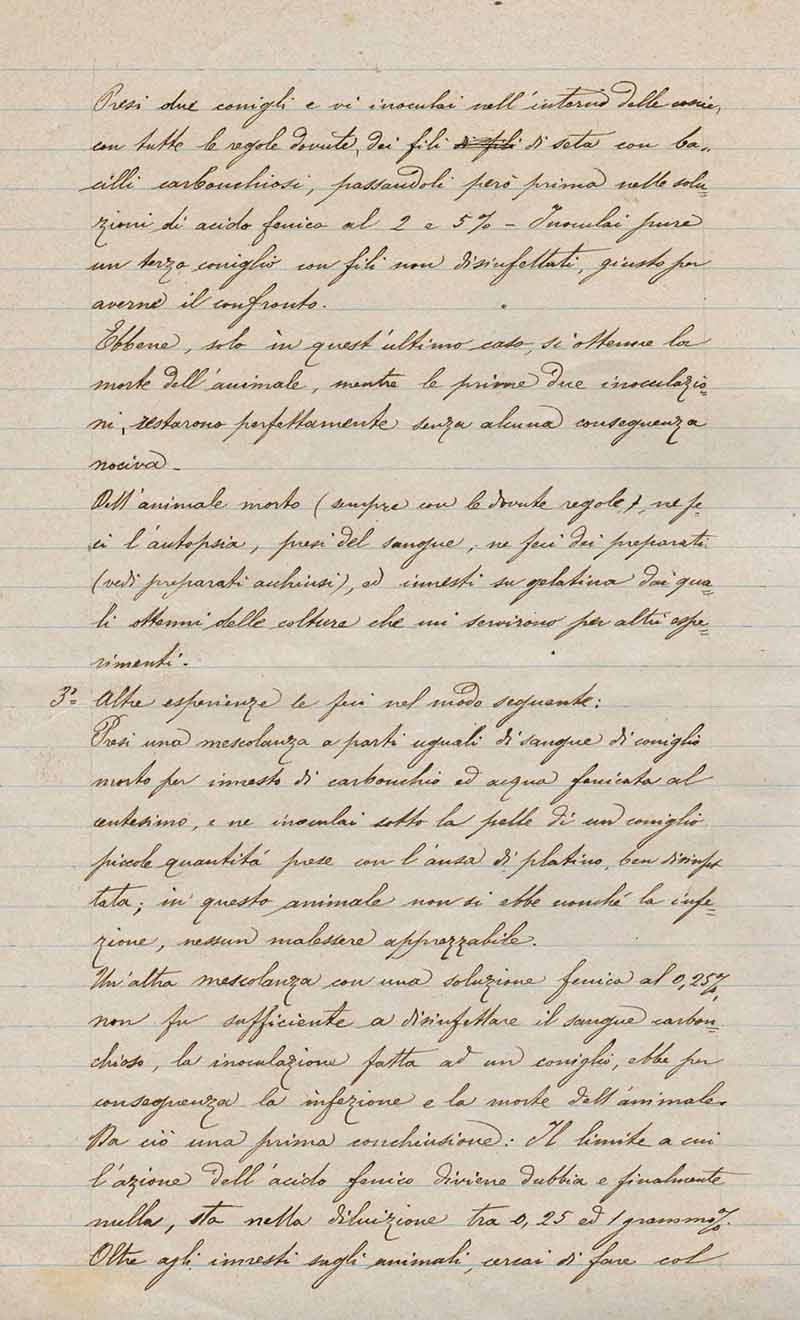 Presi due conigli e vi inoculai nell'interno delle coscie,
con tutte le regole dovute, dei fili di fili di seta con ba=
cilli carbonchiosi, passandoli però prima nelle solu=
zioni di acido fenico al 2 e 5% - Inoculai pure
un terzo coniglio con fili non disinfettati, giusto per
averne il confronto.
Ebbene, solo in quest'ultimo caso, si ottenne la
morte dell'animale, mentre le prime due inoculazio=
ni, restarono perfettamente senza alcuna conseguenza
nociva -
Dell'animale morto (sempre con le dovute regole), ne fe=
ci l'autopsia, presi del sangue, ne feci dei preparati
(vedi preparati acchiusi), ed innesti su gelatina dai qua=
li ottenni delle colture che mi servirono per altri espe=
rimenti.
3º= Altre esperienze le feci nel modo seguente:
Presi una mescolanza a parti uguali di sangue di coniglio
morto per innesto di carbonchio ed acqua fenicata al
centesimo, e ne inoculai sotto la pelle di un coniglio
piccole quantità prese con l'ansa di platino, ben disinfet
tata; in questo animale non si ebbe nonché la infe=
zione, nessun malessere apprezzabile.
Un'altra mescolanza con una soluzione fenica al 0,25%,
non fu sufficiente a disinfettare il sangue carbon=
chioso, la inoculazione fatta ad un coniglio, ebbe per
conseguenza la infezione e la morte dell'animale.
Da ciò una prima conchiusione: Il limite a cui
l'azione dell'acido fenico diviene dubbia e finalmente
nulla, sta nella diluizione tra 0,25 ed 1 grammo%.
Oltre agli innesti sugli animali, cercai di fare col